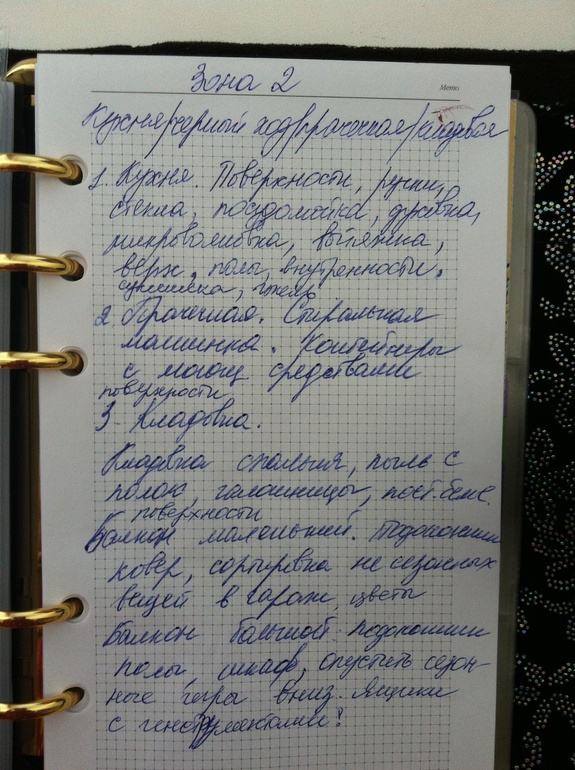 Зона 2
Memo
Кухня/черный ход/прачечная/кладовая
1. Кухня. Поверхности, ручки,
стекла, посудомойка, духовка,
микроволновка, вытяжка,
верх, полы, внутренности.
сушилка,
2. Прачечная. Стиральная
машинка. Контейнеры
с моющ средствами
поверхности
3. Кладовка.
Кладовка спальня, пыль с
полок, пост.белье.
поверхности
Балкон маленький. Подоконники
ковер, сортировка не сезонных
вещей в гараж, цветы
Балкон большой. подоконники
полы, шкаф, опустить сезон-
ные вниз. Ящики
с инструментами!